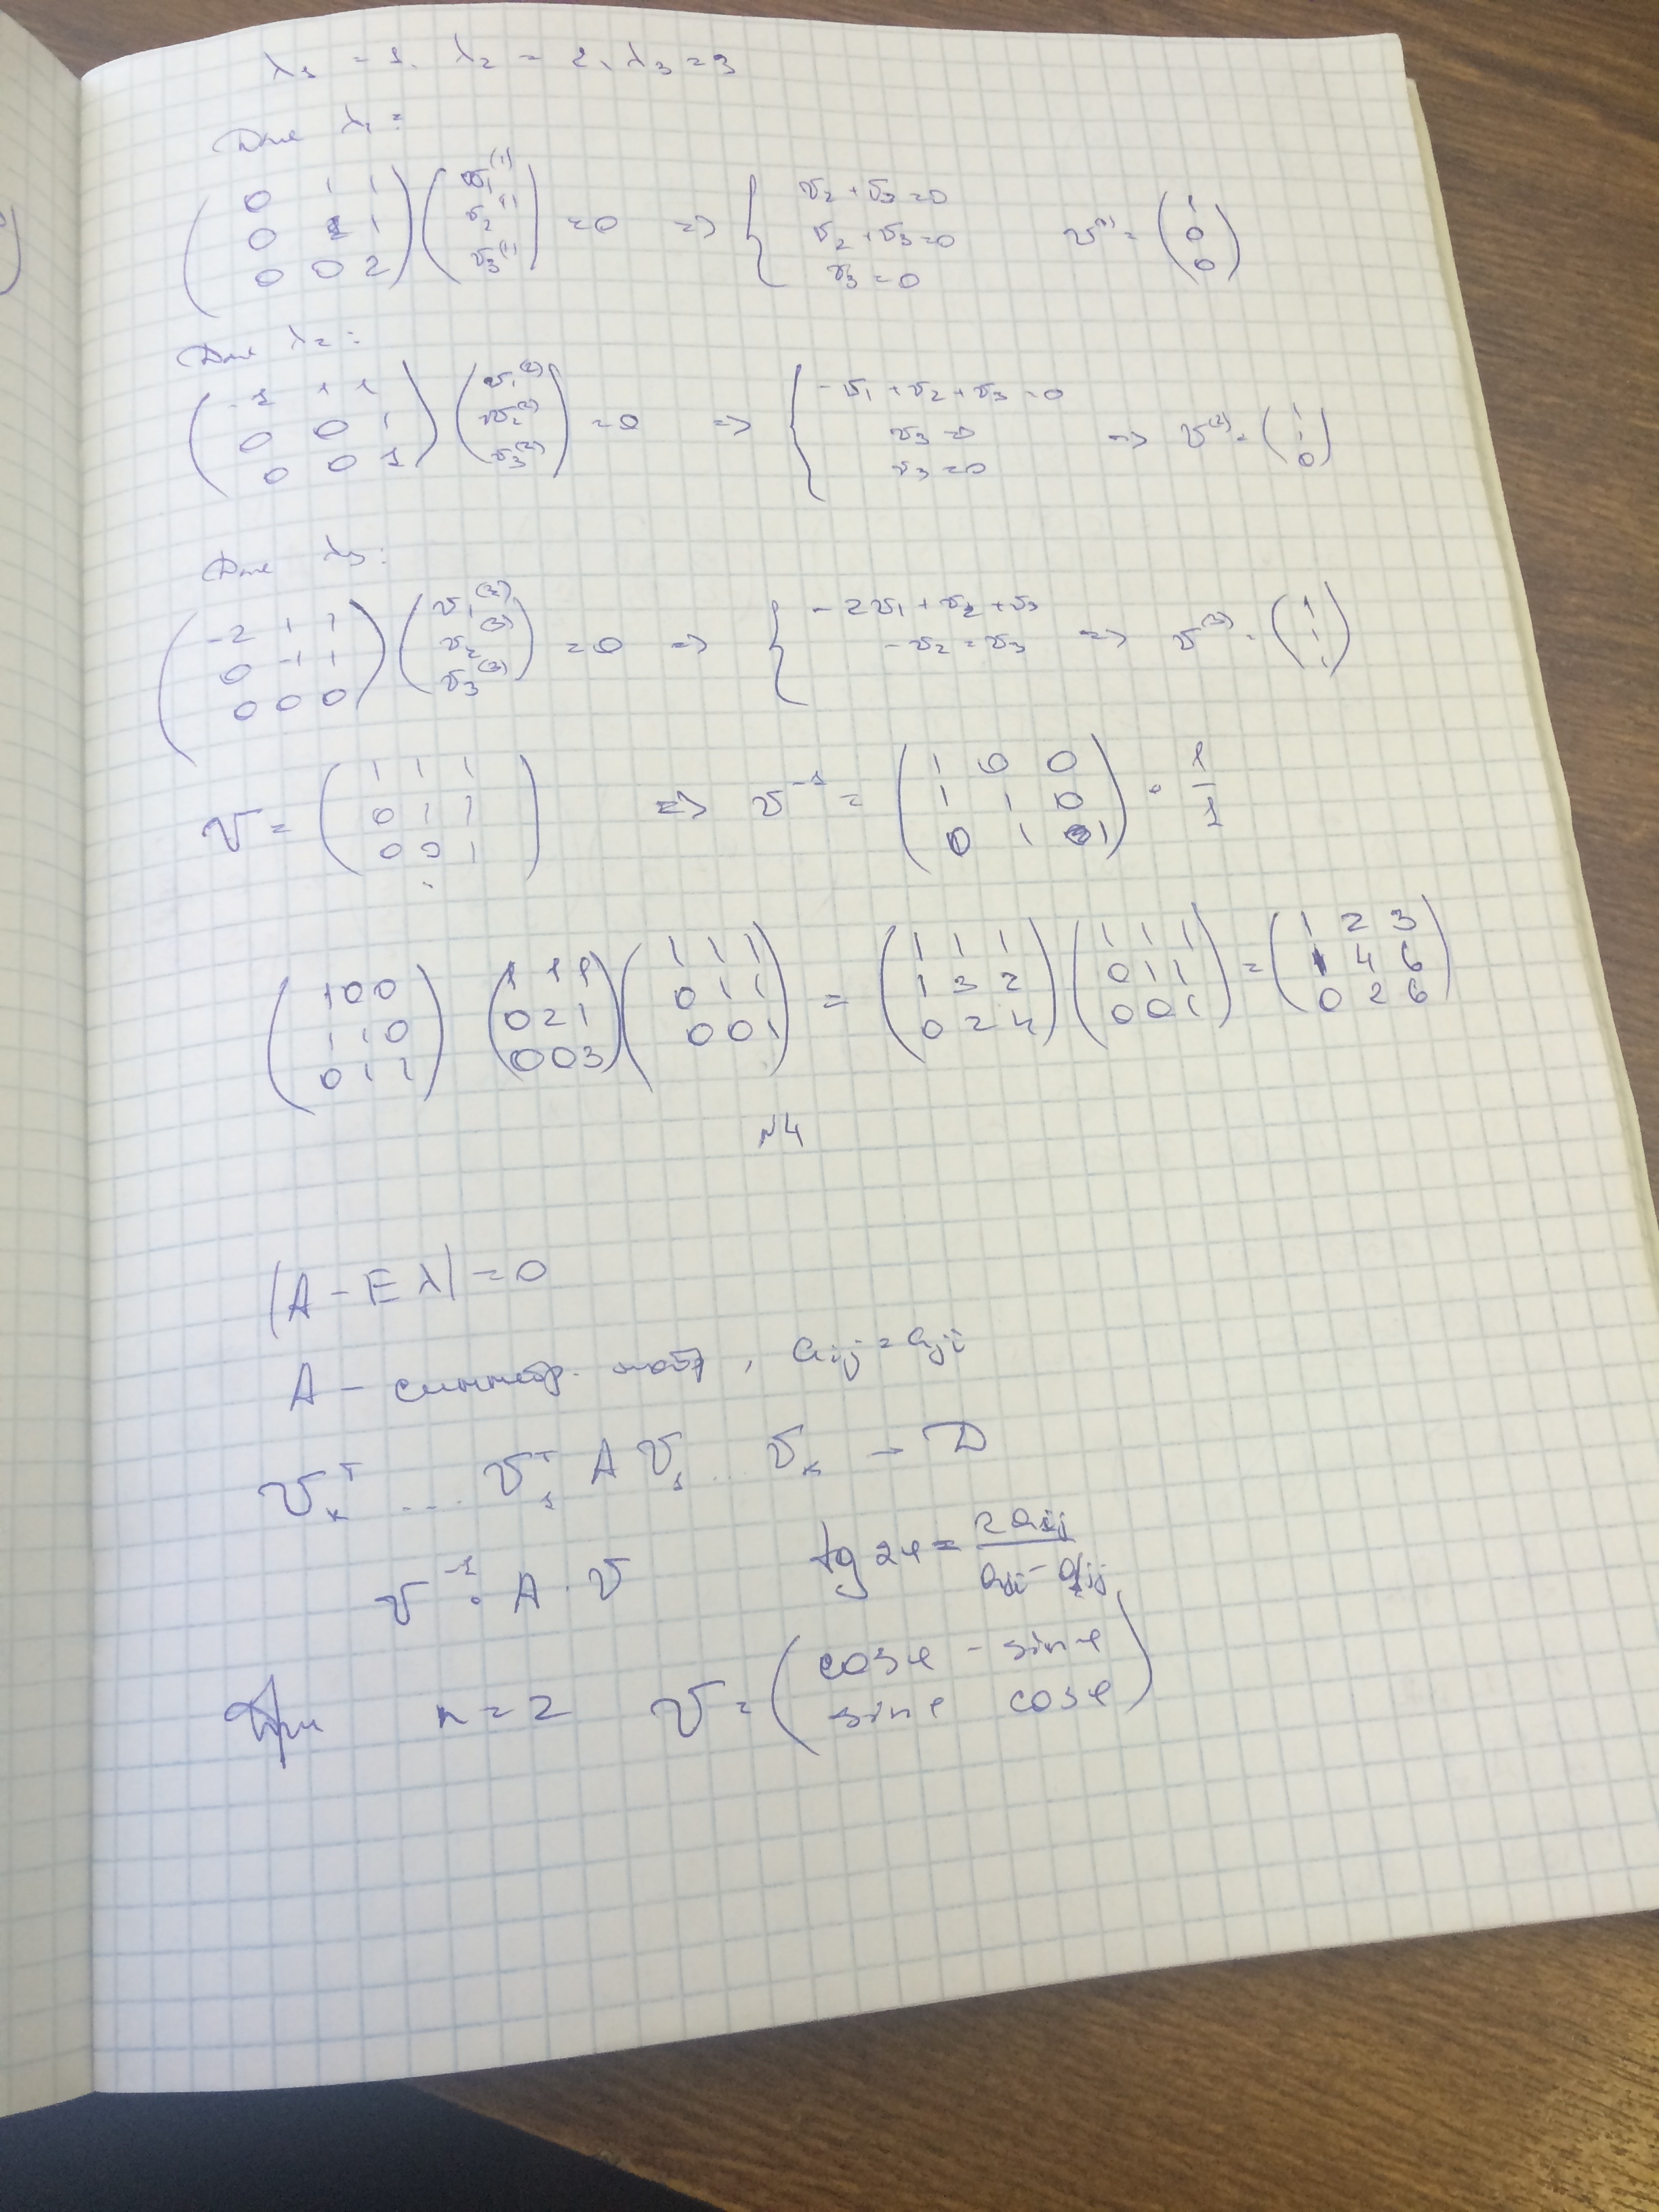 λ₁ = 1, λ₂ = 2, λ₃ = 3
Для λ₁:
(0 1 1; 0 1 1; 0 0 2) (v₁⁽¹⁾; v₂⁽¹⁾; v₃⁽¹⁾) = 0 => { v₂ + v₃ = 0; v₂ + v₃ = 0; v₃ = 0 v⁽¹⁾ = (1; 0; 0)
Для λ₂:
(-1 1 1; 0 0 1; 0 0 1) (v₁⁽²⁾; v₂⁽²⁾; v₃⁽²⁾) = 0 => { -v₁ + v₂ + v₃ = 0; v₃ = 0; v₃ = 0 => v⁽²⁾ = (1; 1; 0)
Для λ₃:
(-2 1 1; 0 -1 1; 0 0 0) (v₁⁽³⁾; v₂⁽³⁾; v₃⁽³⁾) = 0 => { -2v₁ + v₂ + v₃; -v₂ = v₃ => v⁽³⁾ = (1; 1; 1)
V = (1 1 1; 0 1 1; 0 0 1) => V⁻¹ = (1 0 0; 1 1 0; 0 1 1) · 1/1
(1 0 0; 1 1 0; 0 1 1) (1 1 1; 0 2 1; 0 0 3) (1 1 1; 0 1 1; 0 0 1) = (1 1 1; 1 3 2; 0 2 4) (1 1 1; 0 1 1; 0 0 1) = (1 2 3; 1 4 6; 0 2 6)
№4
|A - Eλ| = 0
A - симметр. матр, aᵢⱼ = aⱼᵢ
Vₖᵀ ... V₁ᵀ A V₁ ... Vₖ → D
V⁻¹ · A · V tg 2φ = 2aᵢⱼ / aᵢᵢ - aⱼⱼ
При n = 2 V = (cosφ -sinφ; sinφ cosφ)